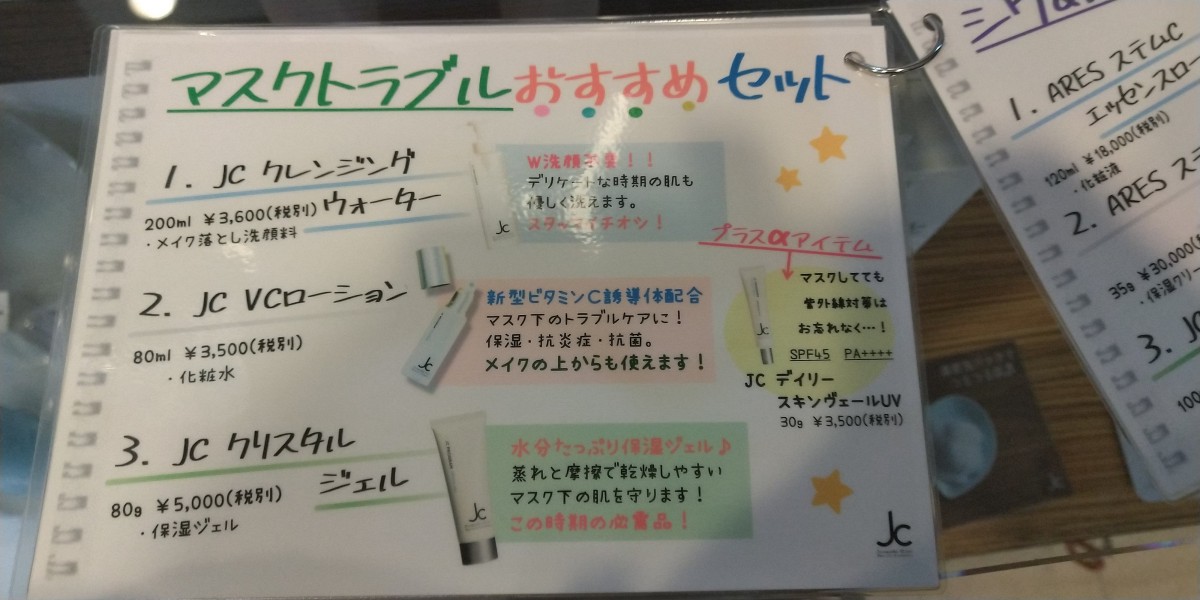 マスクトラブルおすすめセット
1. JC クレンジング
ウォーター
200ml ￥3,600(税別)
・メイク落とし洗顔料
W洗顔不要！！
デリケートな時期の肌も
優しく洗えます。
スタッフイチオシ！
2. JC VCローション
80ml ￥3,500(税別)
・化粧水
新型ビタミンC誘導体配合
マスク下のトラブルケアに！
保湿・抗炎症・抗菌。
メイクの上からも使えます！
プラスαアイテム
マスクしてても
紫外線対策は
お忘れなく…！
SPF45 PA++++
JC デイリー
スキンヴェールUV
30g ￥3,500(税別)
3. JC クリスタル
ジェル
80g ￥5,000(税別)
・保湿ジェル
水分たっぷり保湿ジェル♪
蒸れと摩擦で乾燥しやすい
マスク下の肌を守ります！
この時期の必需品！
Jc
Jc
Jc
Jc
Jc
1. ARES ステムC
エッセンスロー
120ml ￥18,000(税別)
・化粧液
2. ARES ス
35g ￥30,000(
・保湿クリ
3. J
100